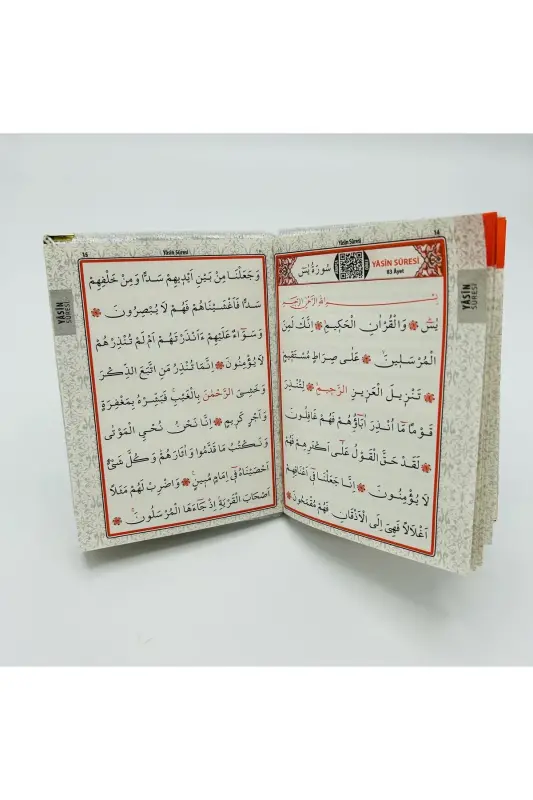 14
Yâsîn Sûresi
YÂSÎN SÛRESİ
83 Âyet
سُورَةُ يٰسٓ
YÂSÎN
SÛRESİ
بِسْمِ اللّٰهِ الرَّحْمٰنِ الرَّحِيمِ
يٰسٓ وَالْقُرْاٰنِ الْحَكِيمِ اِنَّكَ لَمِنَ
الْمُرْسَلِينَ عَلٰى صِرَاطٍ مُسْتَقِيمٍ
تَنْزِيلَ الْعَزِيزِ الرَّحِيمِ لِتُنْذِرَ
قَوْمًا مَٓا اُنْذِرَ اٰبَٓاؤُ۬هُمْ فَهُمْ غَافِلُونَ
لَقَدْ حَقَّ الْقَوْلُ عَلٰٓى اَكْثَرِهِمْ فَهُمْ
لَا يُؤْمِنُونَ اِنَّا جَعَلْنَا فِٓى اَعْنَاقِهِمْ
اَغْلَالًا فَهِىَ اِلَى الْاَذْقَانِ فَهُمْ مُقْمَحُونَ
Yâsîn Sûresi
YÂSÎN
SÛRESİ
وَجَعَلْنَا مِنْ بَيْنِ اَيْدِيهِمْ سَدًّا وَمِنْ خَلْفِهِمْ
سَدًّا فَاَغْشَيْنَاهُمْ فَهُمْ لَا يُبْصِرُونَ
وَسَوَٓاءٌ عَلَيْهِمْ ءَاَنْذَرْتَهُمْ اَمْ لَمْ تُنْذِرْهُمْ
لَا يُؤْمِنُونَ اِنَّمَا تُنْذِرُ مَنِ اتَّبَعَ الذِّكْرَ
وَخَشِىَ الرَّحْمٰنَ بِالْغَيْبِ فَبَشِّرْهُ بِمَغْفِرَةٍ
وَاَجْرٍ كَرِيمٍ اِنَّا نَحْنُ نُحْيِى الْمَوْتٰى
وَنَكْتُبُ مَا قَدَّمُوا وَاٰثَارَهُمْ وَكُلَّ شَىْءٍ
اَحْصَيْنَاهُ فِٓى اِمَامٍ مُبِينٍ وَاضْرِبْ لَهُمْ مَثَلًا
اَصْحَابَ الْقَرْيَةِ اِذْ جَٓاءَهَا الْمُرْسَلُونَ